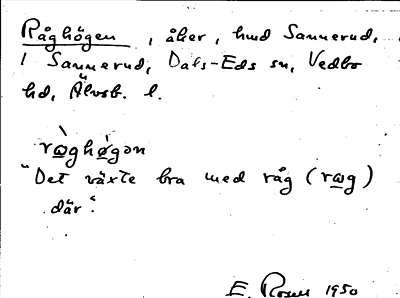 Råghögen, åker, hmd Sannerud,
1 Sannerud, Dals-Eds sn, Vedbo
hd, Älvsb. l.
rɷ̀ghø̀gən
"Det växte bra med råg (rɷg)
där".
E. Rosell 1950